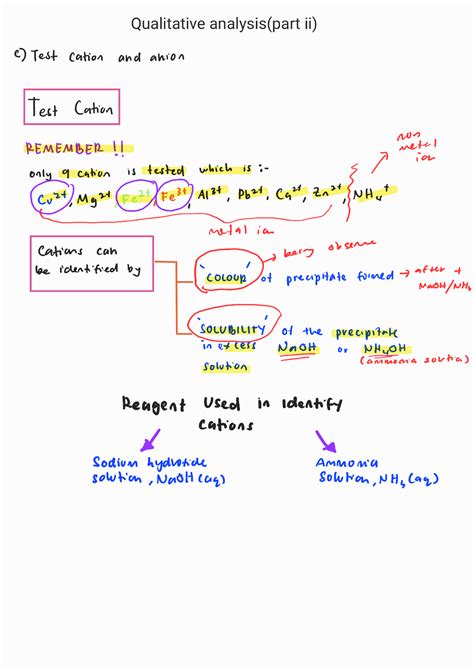 Qualitative analysis(part ii)
c) Test cation and anion
Test Cation
REMEMBER !!
only 9 cation is tested which is :-
non
metal
ion
Cu²⁺, Mg²⁺ Fe²⁺, Fe³⁺, Al³⁺, Pb²⁺, Ca²⁺, Zn²⁺, NH₄⁺
metal ion
Cations can
be identified by
being observe
'COLOUR' of precipitate formed → after +
NaOH/NH₃
'SOLUBILITY' of the precipitate
in excess NaOH or NH₄OH
solution (ammonia solution)
Reagent Used in Identify
Cations
Sodium hydroxide
solution, NaOH (aq)
Ammonia
solution, NH₄ (aq)